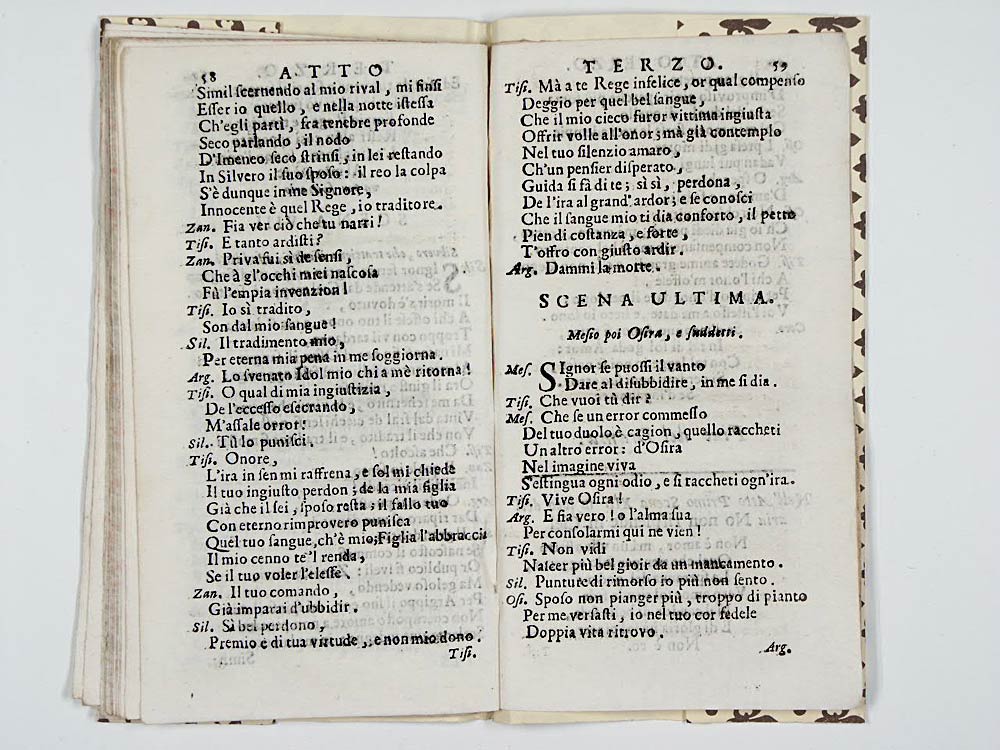 58 ATTO
Simil scernendo al mio rival, mi finsi
Esser io quello, e nella notte istessa
Ch'egli partì, fra tenebre profonde
Seco parlando, il nodo
D'Imeneo seco strinsi, in lei restando
In Silvero il suo sposo: il reo la colpa
S'è dunque in me Signore,
Innocente è quel Rege, io traditore.
Zan. Fia ver ciò che tu narri!
Tisi. E tanto ardisti?
Zan. Priva fui sì de sensi,
Che à gl'occhi miei nascosa
Fù l'empia invenzion!
Tisi. Io sì tradito,
Son dal mio sangue!
Sil. Il tradimento mio,
Per eterna mia pena in me soggiorna.
Arg. Lo svenato Idol mio chi a mè ritorna!
Tisi. O qual di mia ingiustizia,
De l'eccesso esecrando,
M'assale orror!
Sil. Tù lo punisci.
Tisi. Onore,
L'ira in sen mi raffrena, e sol mi chiede
Il tuo ingiusto perdon; de la mia figlia
Già che il sei, sposo resta; il fallo tuo
Con eterno rimprovero punisca
Quel tuo sangue, ch'è mio; Figlia l'abbraccia
Il mio cenno te'l renda,
Se il tuo voler l'elesse.
Zan. Il tuo comando,
Già imparai d'ubbidir.
Sil. Sì bel perdono,
Premio è di tua virtude, e non mio dono.
Tisi.
TERZO. 59
Tisi. Mà a te Rege infelice, or qual compenso
Deggio per quel bel sangue,
Che il mio cieco furor vittima ingiusta
Offrir volle all'onor; mà già contemplo
Nel tuo silenzio amaro,
Ch'un pensier disperato,
Guida si fà di te; sì sì, perdona,
De l'ira al grand'ardor; e se conosci
Che il sangue mio ti dia conforto, il petto
Pien di costanza, e forte,
T'offro con giusto ardir.
Arg. Dammi la morte.
SCENA ULTIMA.
Messo poi Osira, e suddetti.
Mes. SIgnor se puossi il vanto
Dare al disubbidire, in me si dia.
Tisi. Che vuoi tù dir?
Mes. Che se un error commesso
Del tuo duolo è cagion, quello raccheti
Un altro error: d'Osira
Nel imagine viva
S'estingua ogni odio, e si raccheti ogn'ira.
Tisi. Vive Osira!
Arg. E fia vero! o l'alma sua
Per consolarmi qui ne vien!
Tisi. Non vidi
Nascer più bel gioir da un mancamento.
Sil. Punture di rimorso io più non sento.
Osi. Sposo non pianger più, troppo di pianto
Per me versasti, io nel tuo cor fedele
Doppia vita ritrovo.
Arg.